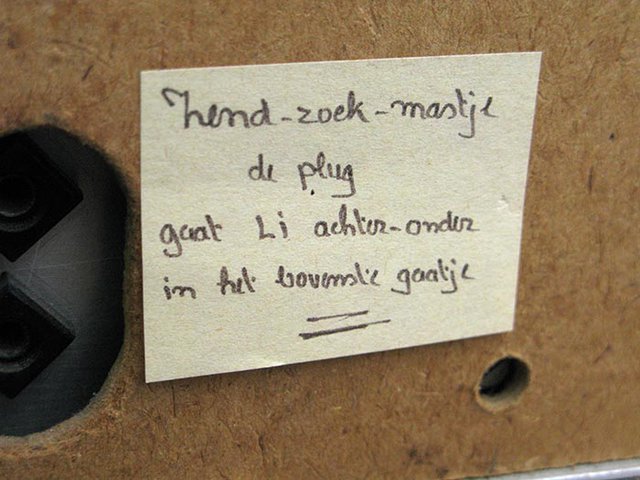 Zend-zoek-mastje
de plug
gaat Li achter-onder
in het bovenste gaatje